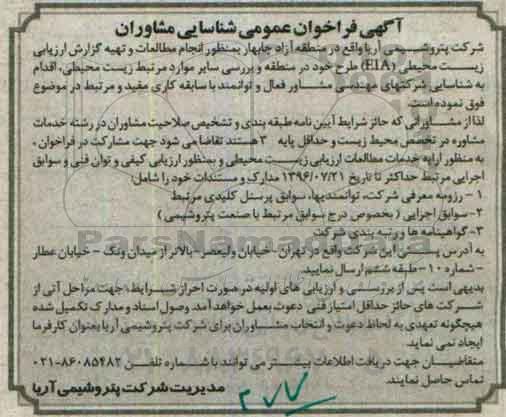 آگهی فراخوان عمومی شناسایی مشاوران
شرکت پتروشیمی آریا واقع در منطقه آزاد چابهار بمنظور انجام مطالعات و تهیه گزارش ارزیابی
زیست محیطی (EIA) طرح خود در منطقه و بررسی سایر موارد مرتبط زیست محیطی، اقدام
به شناسایی شرکتهای مهندسی مشاور فعال و توانمند با سابقه کاری مفید و مرتبط در موضوع
فوق نموده است.
لذا از مشاورانی که حائز شرایط آیین نامه طبقه بندی و تشخیص صلاحیت مشاوران در رشته خدمات
مشاوره در تخصص محیط زیست و حداقل پایه ۳ هستند تقاضا می شود جهت مشارکت در فراخوان ،
به منظور ارایه خدمات مطالعات ارزیابی زیست محیطی و بمنظور ارزیابی کیفی و توان فنی و سوابق
اجرایی مرتبط حداکثر تا تاریخ ۱۳۹۶/۰۷/۲۱ مدارک و مستندات خود را شامل:
۱ – رزومه معرفی شرکت، توانمندیها، سوابق پرسنل کلیدی مرتبط
۲-سوابق اجرایی ( بخصوص درج سوابق مرتبط با صنعت پتروشیمی )
۳-گواهینامه ها و رتبه بندی شرکت
به آدرس پستی این شرکت واقع در تهران -خیابان ولیعصر- بالاتر از میدان ونک – خیابان عطار
– شماره ۱۰ – طبقه ششم ارسال نمایید.
بدیهی است پس از بررسی و ارزیابی های اولیه در صورت احراز شرایط ، جهت مراحل آتی از
شرکت های حائز حداقل امتیاز فنی دعوت بعمل خواهد آمد. وصول اسناد و مدارک تکمیل شده
هیچگونه تعهدی به لحاظ دعوت و انتخاب مشاوران برای شرکت پتروشیمی آریا بعنوان کارفرما
ایجاد نمی نماید.
متقاضیان جهت دریافت اطلاعات بیشتر می توانند با شماره تلفن ۸۶۰۸۵۴۸۲-۰۲۱
تماس حاصل نمایند.
مدیریت شرکت پتروشیمی آریا
ParsNamadData